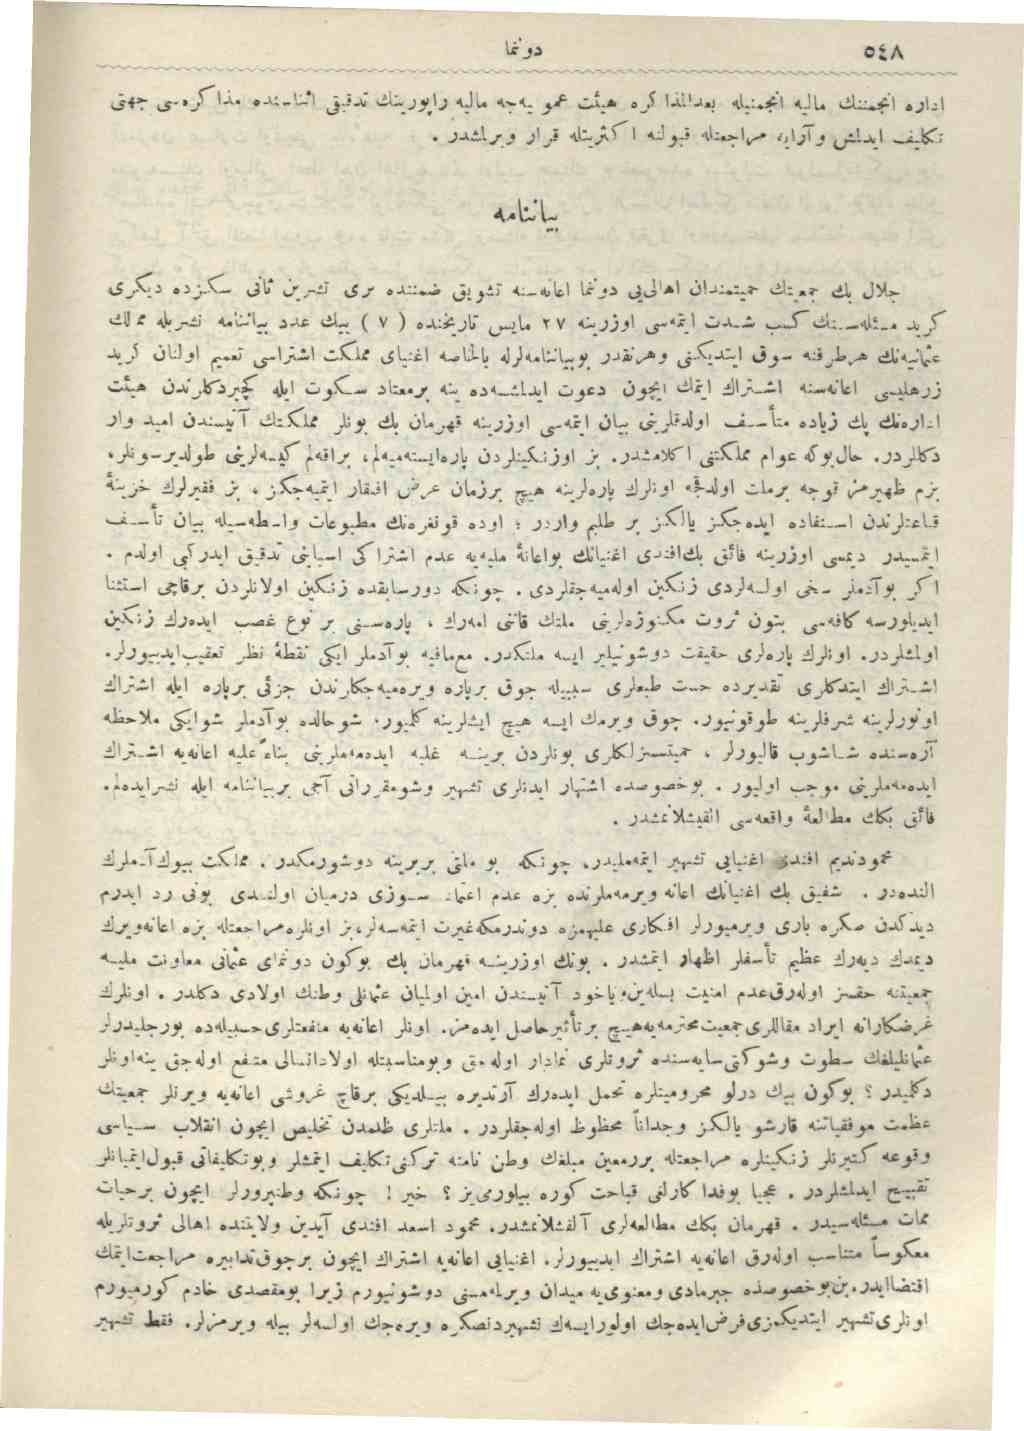 دوننما ٥٤٨
اداره انجمننك ماليه انجمنيله بعدالمذاكره هيئت عموميه‌جه ماليه راپورينك تدقيقى اثناسنده مذاكره‌سى جهتى
تكليف ايدلمش وآرايه مراجعتله قبولنه اكثريتله قرار ويرلمشدر .
بياننامه
جلال بك جمعيتك حميتمندان اهالى‌يى دوننما اعانه‌سنه تشويق ضمننده برى تشرين ثانى سكزده ديكرى
كريد مسئله‌سنك كسب شدت ايتمه‌سى اوزرينه ٢٧ مايس تاريخنده ( ٧ ) بيك عدد بياننامه نشريله ممالك
عثمانيه‌نك هرطرفنه سوق ايتديكنى وهرنقدر بوبياننامه‌لرله بالخاصه اغنياى مملكت اشتراسى تعميم اولنان كريد
زرهليسى اعانه‌سنه اشتراك ايتمك ايچون دعوت ايدلمشسه‌ده ينه برمعتاد سكوت ايله كچيردكلرندن هيئت
اداره‌نك پك زياده متأسف اولدقلرينى بيان ايتمه‌سى اوزرينه قهرمان بك بونلر مملكتك آتيسندن اميد وار
دكللردر. حال‌بوكه عوام مملكتنى اكلامشدر. بز اوزنكينلردن پاره‌ايسته‌ميه‌لم، براقه‌لم كيسه‌لرينى طولديرسونلر،
بزم ظهيرمز توجه برملت اولدقجه اونلرك پاره‌لرينه هيچ برزمان عرض افتقار ايتميه‌جكز ، بز فقيرلرك خزينۀ
قناعتلرندن استفاده ايده‌جكز يالكز بر طلبم واردر ؛ اوده قونغره‌نك مطبوعات واسطه‌سيله بيان تأسف
ايتمسيدر ديمسى اوزرينه فائق بك‌افندى اغنيانك بواعانۀ مليه‌يه عدم اشتراكى اسبابنى تدقيق ايدركبى اولدم .
اكر بوآدملر سخى اولسه‌لردى زنكين اوله‌ميه‌جقلردى . چونكه دورسابقده زنكين اولانلردن برقاچى استثنا
ايديلورسه كافه‌سى بتون ثروت مكنوزه‌لرينى ملتك قاننى امه‌رك ، پاره‌سنى بر نوع غصب ايده‌رك زنكين
اولمشلردر. اونلرك پاره‌لرى حقيقت دوشونيلير ايسه ملتكدر. مع‌مافيه بوآدملر ايكى نقطۀ نظر تعقيب‌ايديورلر.
اشتراك ايتدكلرى تقديرده خست طبعلرى سببيله چوق برپاره ويره‌ميه‌جكلرندن جزئى برپاره ايله اشتراك
اونورلرينه شرفلرينه طوقونيور. چوق ويرمك ايسه هيچ ايشلرينه كلميور. شو حالده بوآدملر شوايكى ملاحظه
آره‌سنده شاشوب قاليورلر ، حميتسزلكلرى بونلردن برينه غلبه ايده‌مه‌ملرينى بناءً عليه اعانه‌يه اشتراك
ايده‌مه‌ملرينى موجب اوليور . بوخصوصده اشتهار ايدنلرى تشهير وشومقرراتى آجى بربياننامه ايله نشرايده‌لم.
فائق بكك مطالعۀ واقعه‌سى القيشلانمشدر .
محمودنديم افندى اغنيايى تشهير ايتمه‌مليدر. چونكه بو ملتى بربرينه دوشورمكدر . مملكت بيوك‌آدملرك
النده‌در . شفيق بك اغنيانك اعانه ويرمه‌ملرنده بزه عدم اعتماد سوزى درميان اولندى بونى رد ايدرم
ديدكدن صكره بارى ويرميورلر افكارى عليهمزه دوندرمكه‌غيرت ايتمه‌سه‌لر،بز اونلره‌مراجعتله بزه اعانه‌ويرك
ديمدك ديه‌رك عظيم تأسفلر اظهار ايتمشدر . بونك اوزرينه قهرمان بك بوكون دوننماى عثمانى معاونت مليه
جمعيتنه حقسز اوله‌رق‌عدم امنيت بسله‌ين‌وياخود آتيسندن امين اولميان عثمانلى وطنك اولادى دكلدر . اونلرك
غرضكارانه ايراد مقاللرى‌جمعيت‌محترمه‌يه‌هيچ برتأثيرحاصل ايده‌مز. اونلر اعانه‌يه منفعتلرى‌حسبيله‌ده بورجليدرلر
عثمانليلغك سطوت وشوكتى‌سايه‌سنده ثروتلرى نمادار اوله‌جق وبومناسبتله اولادانسالى متنفع اوله‌جق ينه‌اونلر
دكلميدر ؟ بوكون بيك درلو محروميتلره تحمل ايده‌رك آرتديره بيلديكى برقاچ غروشى اعانه‌يه ويرنلر جمعيتك
عظمت موفقياتنه قارشو يالكز وجداناً محظوظ اوله‌جقلردر . ملتلرى ظلمدن تخليص ايچون انقلاب سياسى
وقوعه كتيرنلر زنكينلره مراجعتله بررمعين مبلغك وطن نامنه تركنى‌تكليف ايتمشلر وبوتكليفاتى قبول‌ايتميانلر
تقبيح ايدلمشلردر . عجبا بوفداكارلغى قباحت كوره بيلورمى‌يز ؟ خير ! چونكه وطنپرورلر ايچون برحيات
ممات مسئله‌سيدر . قهرمان بكك مطالعه‌لرى آلقشلانمشدر. محمود اسعد افندى آيدين ولايتنده اهالى ثروتلريله
معكوساً متناسب اوله‌رق اعانه‌يه اشتراك ايديورلر. اغنيايى اعانه‌يه اشتراك ايچون برچوق‌تدابيره مراجعت‌ايتمك
اقتضاايدر.بن‌بوخصوصده جبرمادى ومعنوى‌يه ميدان ويرلمه‌سنى دوشونيورم زيرا بومقصدى خادم كورميورم
اونلرى‌تشهير ايتديكمزى‌فرض‌ايده‌جك اولورايسه‌ك تشهيردنصكره ويره‌جك اولسه‌لر بيله ويرمزلر. فقط تشهير